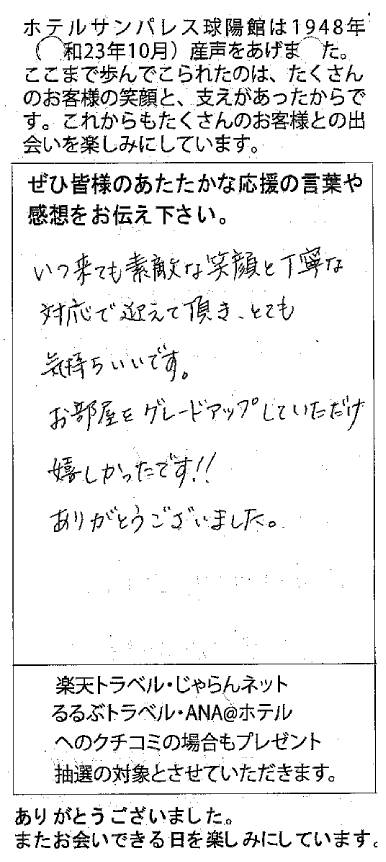 ホテルサンパレス球陽館は1948年
（ 和23年10月）産声をあげま た。
ここまで歩んでこられたのは、たくさん
のお客様の笑顔と、支えがあったからで
す。これからもたくさんのお客様との出
会いを楽しみにしています。
ぜひ皆様のあたたかな応援の言葉や
感想をお伝え下さい。
いつ来ても素敵な笑顔と丁寧な
対応で迎えて頂き、とても
気持ちいいです。
お部屋をグレードアップしていただけ
嬉しかったです!!
ありがとうございました。
楽天トラベル・じゃらんネット
るるぶトラベル・ANA@ホテル
へのクチコミの場合もプレゼント
抽選の対象とさせていただきます。
ありがとうございました。
またお会いできる日を楽しみにしています。